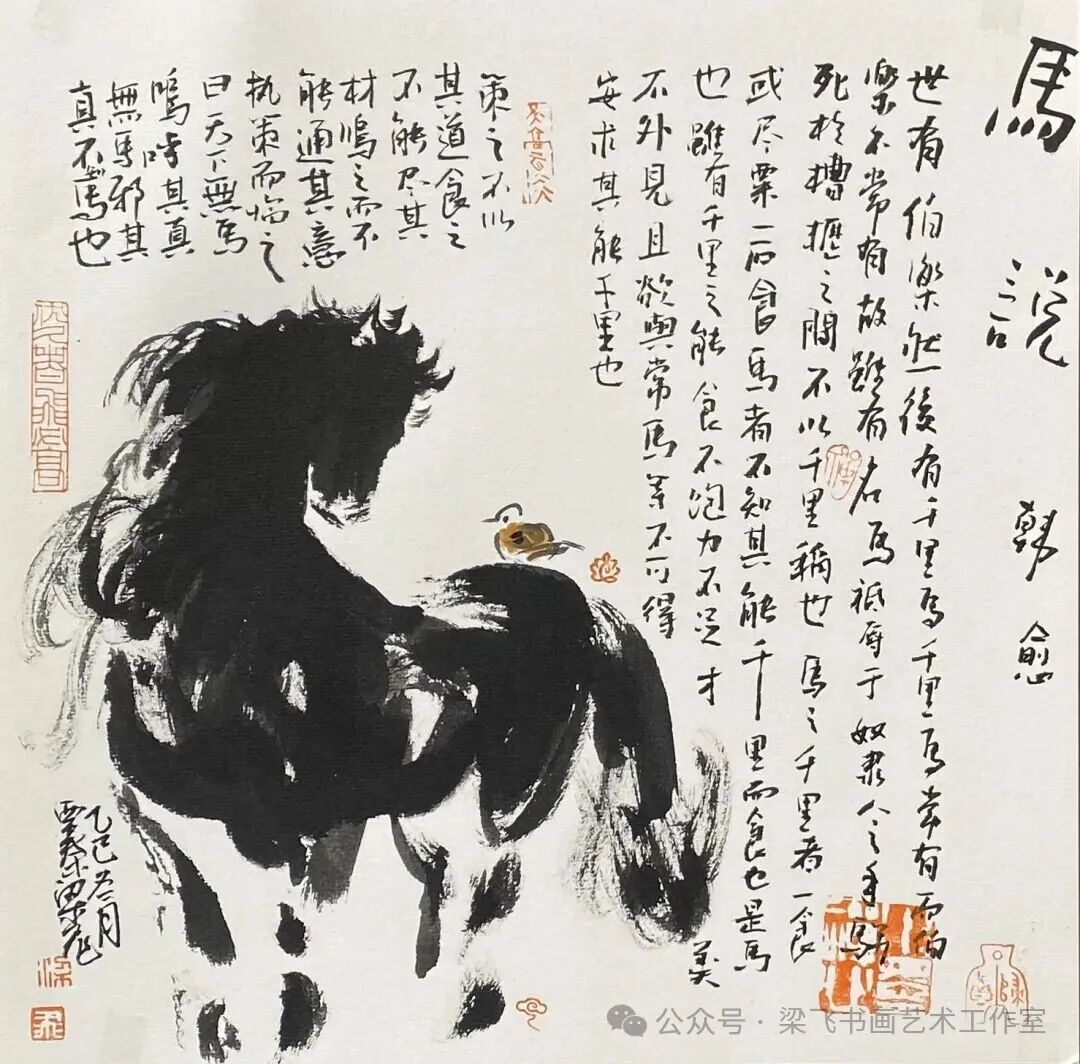 馬說
韓愈
世有伯樂然後有千里馬千里馬常有而伯
樂不常有故雖有名馬祗辱于奴隶人之手駢
死於槽櫪之間不以千里稱也馬之千里者一食
或尽粟一石食馬者不知其能千里而食也是馬
也雖有千里之能食不飽力不足才美
不外見且欲與常馬等不可得
安求其能千里也
策之不以
其道食之
不能尽其
材鳴之而不
能通其意
执策而臨之
曰天下無馬
嗚呼其真
無馬邪其
真不知馬也
乙巳五月
公众号 · 梁飞书画艺术工作室